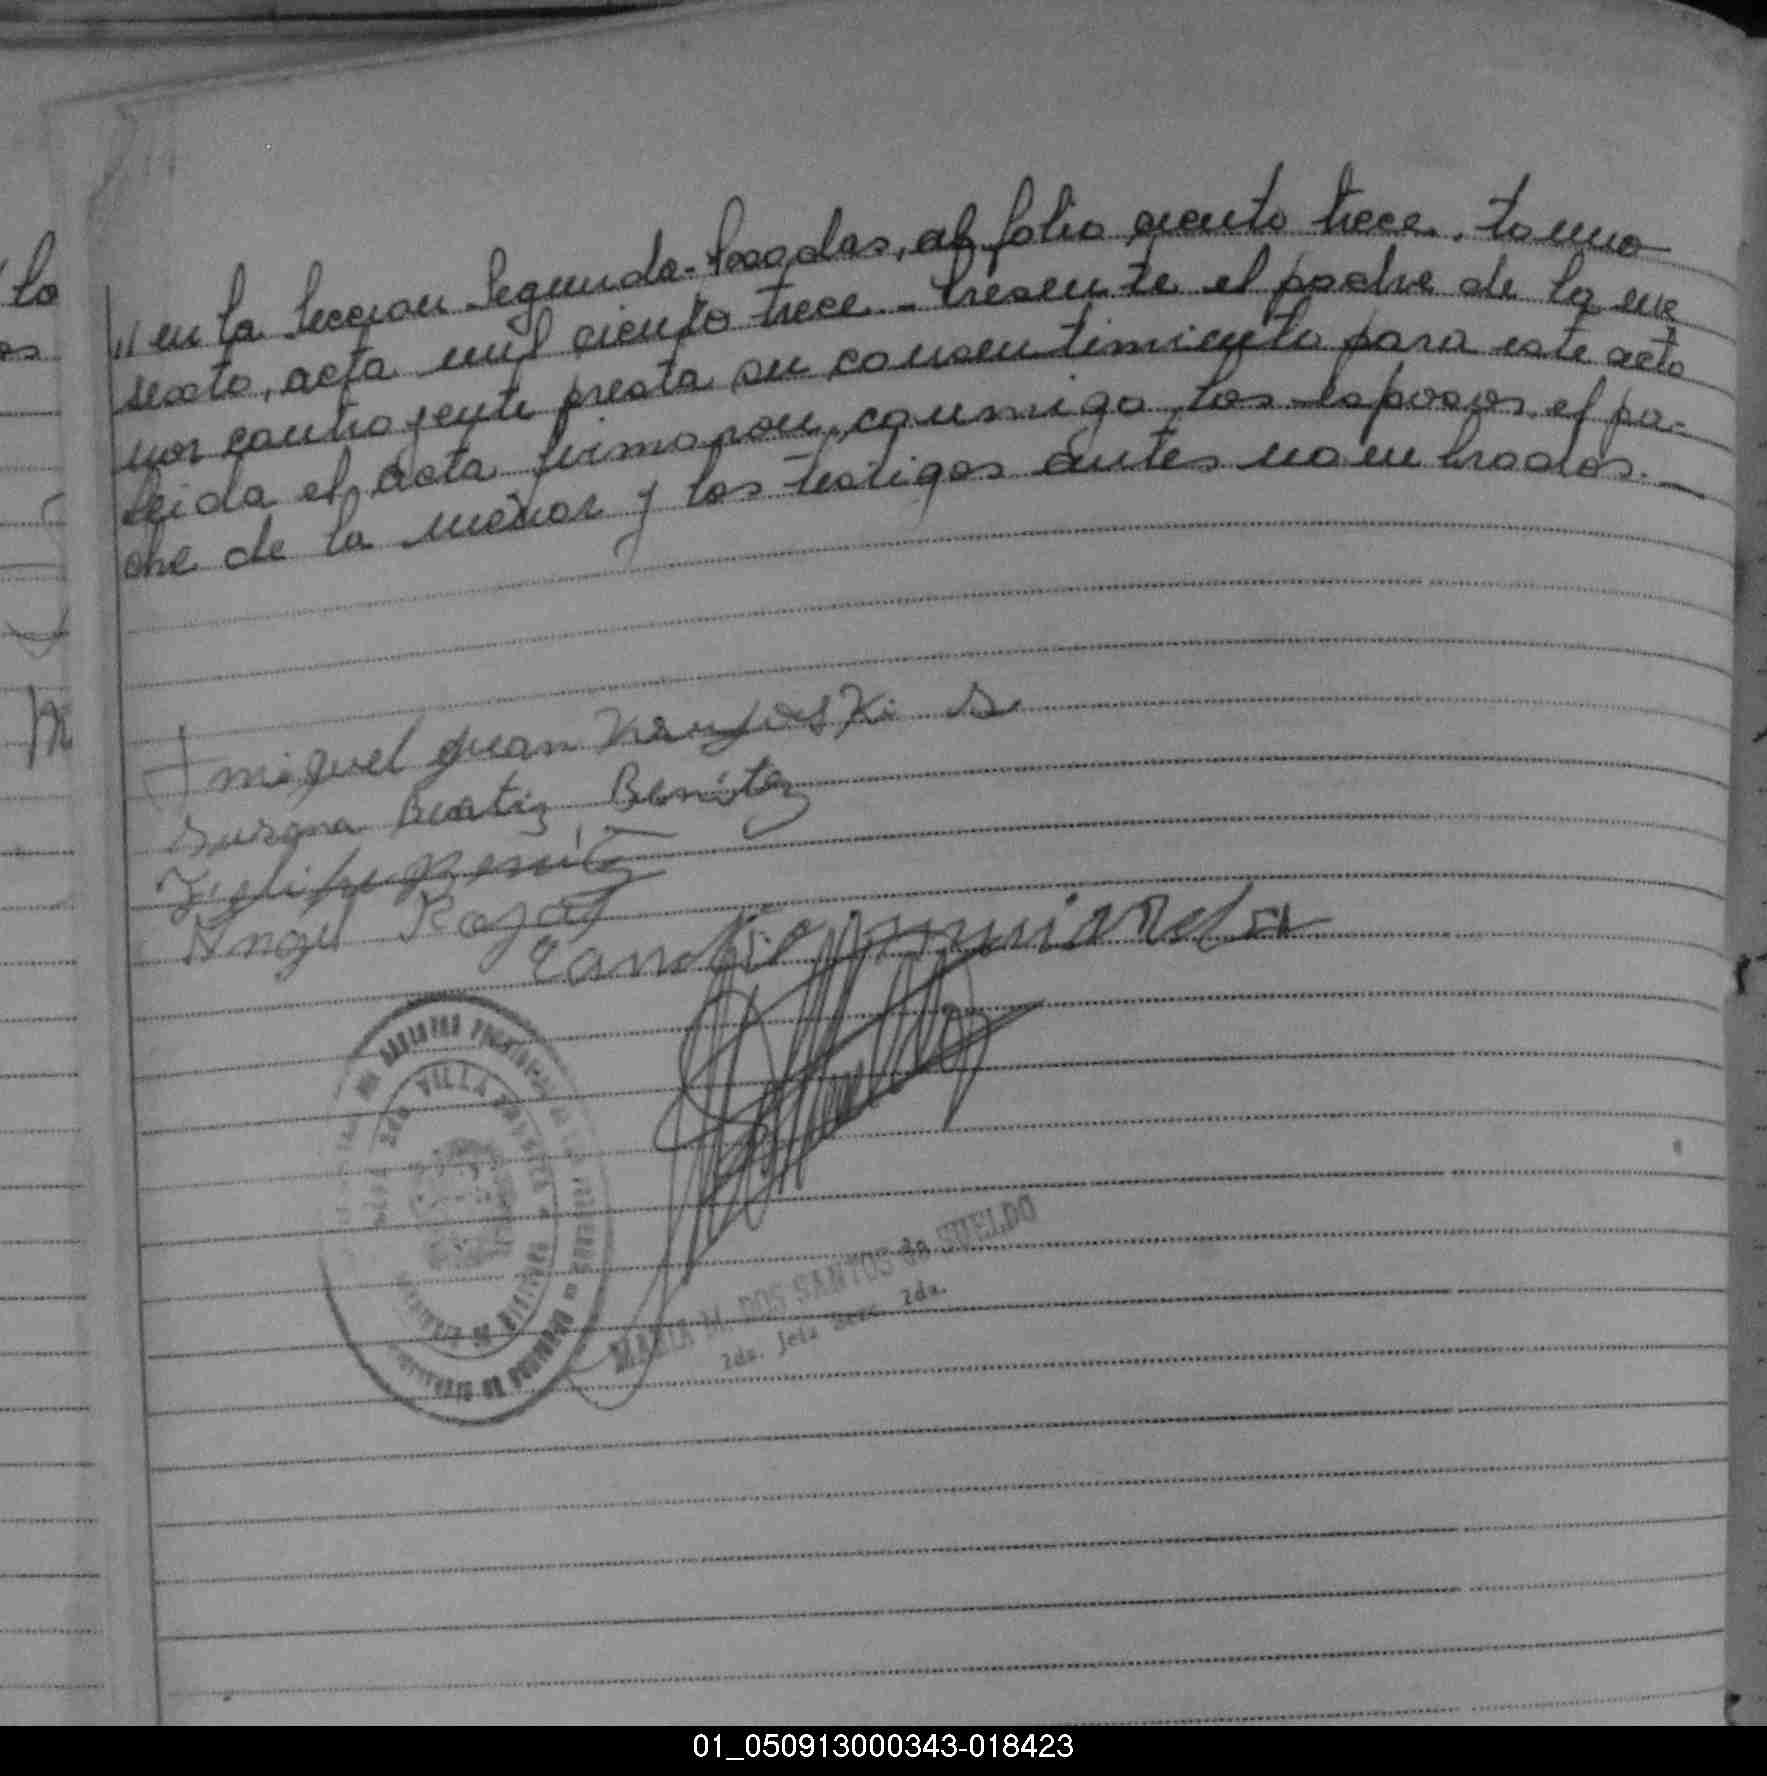 to
os
" en la Seccion Segunda - Posadas, al folio ciento trece, tomo
sexto, acta mil ciento trece. - Presente el padre de la me
nor contrayente presta su consentimiento para este acto
Leida el acta firmaron conmigo los esposos, el pa-
dre de la menor y los testigos antes nombrados. —
Miguel Juan
Susana Beatriz Benitez
Felipe Benitez
Angel Rojas
VILLA
MARIA M. DOS SANTOS de SUELDO
2da. Jefa Secc. 2da.
01_050913000343-018423